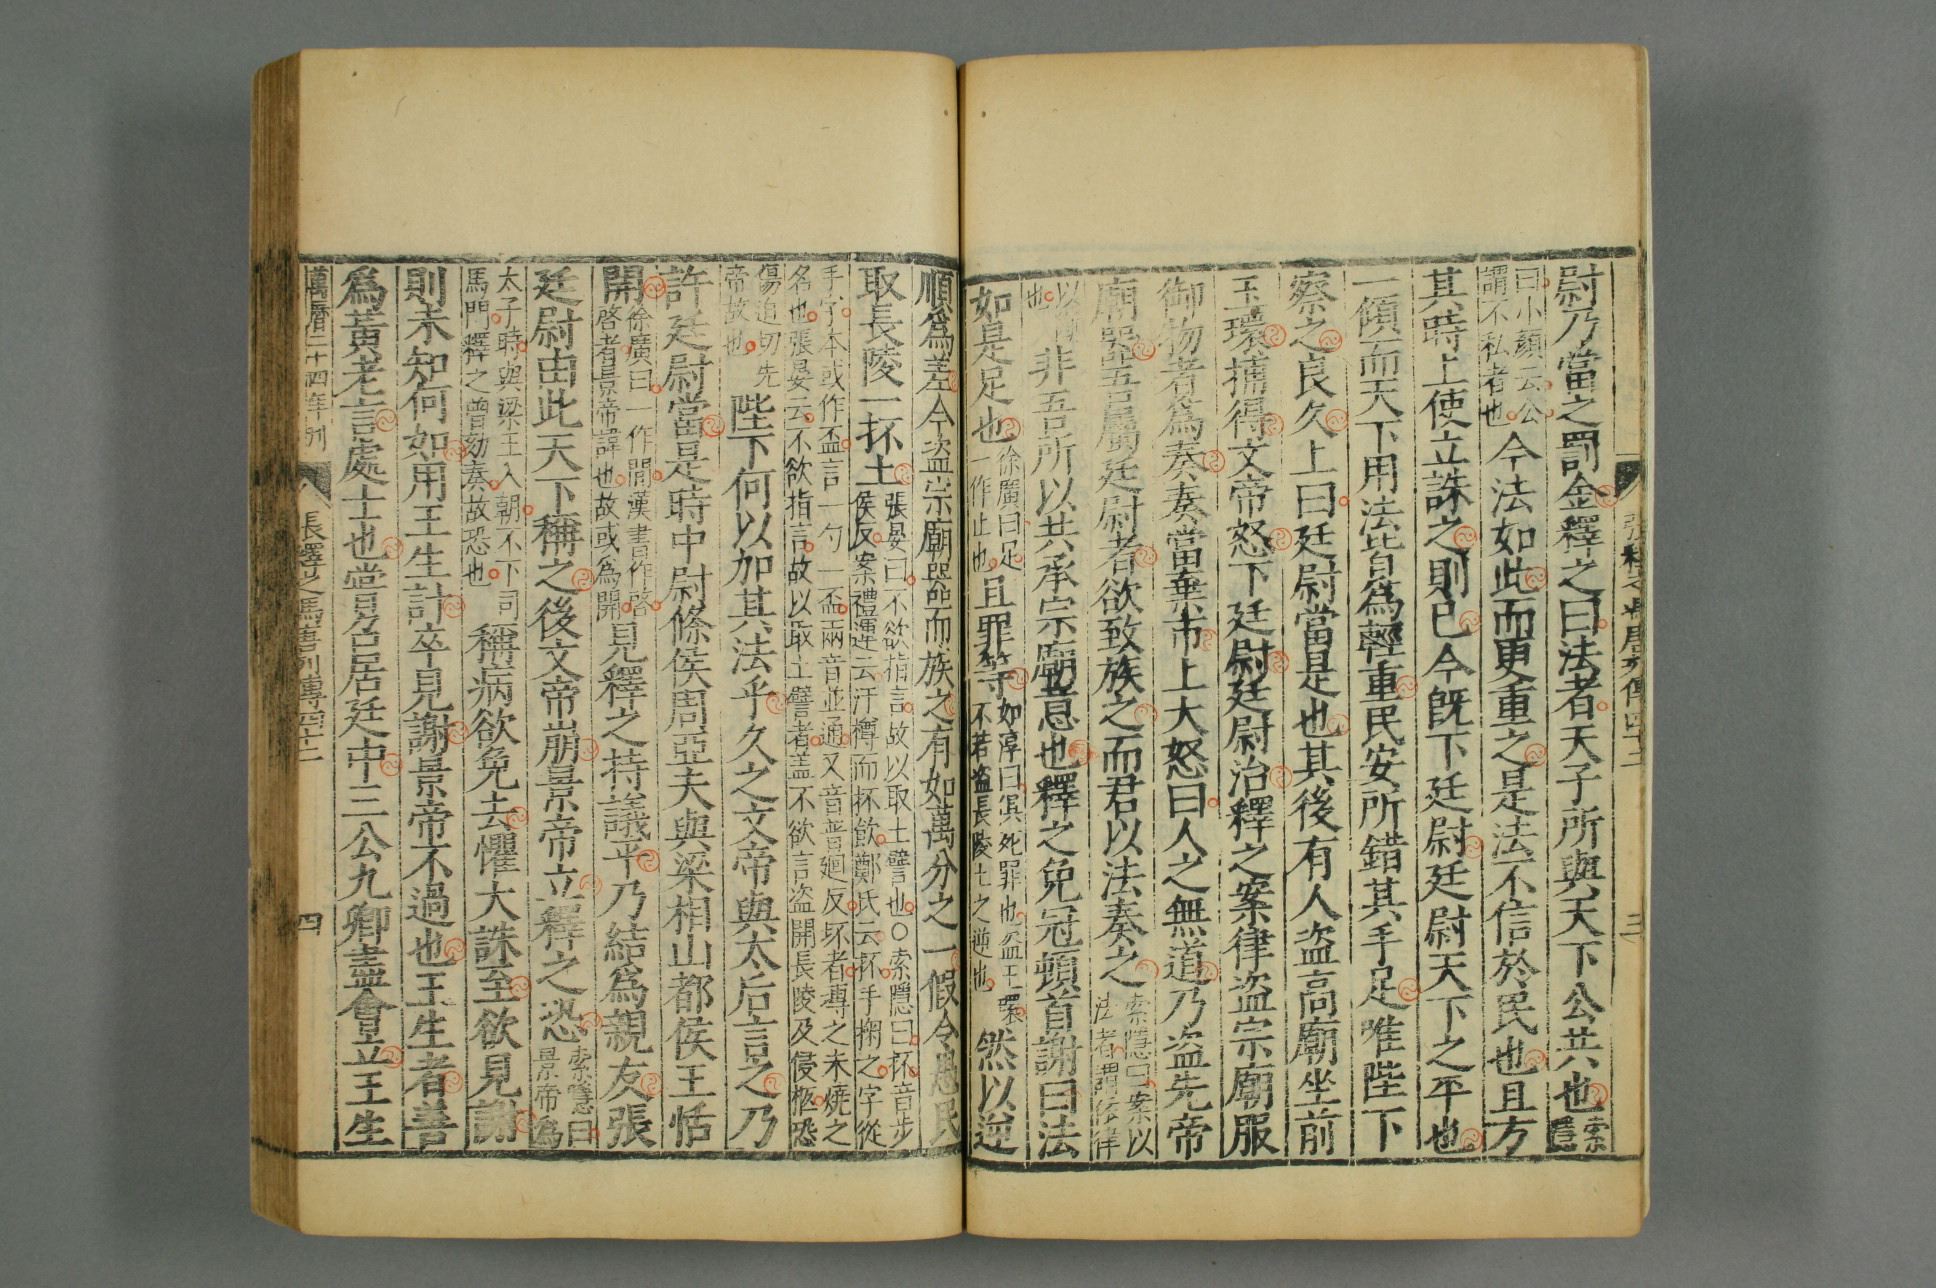 尉乃當之罰金釋之曰法者天子所與天下公共也索隱
曰小顏云公
謂不私者也今法如此而更重之是法不信於民也且方
其時上使立誅之則已今旣下廷尉廷尉天下之平也
一傾而天下用法皆爲輕重民安所錯其手足唯陛下
察之良久上曰廷尉當是也其後有人盜高廟坐前
玉環捕得文帝怒下廷尉廷尉治釋之案律盜宗廟服
御物者爲奏奏當棄市上大怒曰人之無道乃盜先帝
廟器吾屬廷尉者欲致族之而君以法奏之索隱曰案以
法者謂依律
以
也非吾所以共承宗廟意也釋之免冠頓首謝曰法
如是足也徐廣曰足
一作止也且罪等如淳曰俱死罪也盜玉環
不若盜長陵土之逆也然以逆
張釋之馮唐列傳四十二
三
順爲差今盜宗廟器而族之有如萬分之一假令愚民
取長陵一抔土張晏曰不欲指言故以取土譬也○索隱曰抔音步
侯反案禮運云汙樽而抔飮鄭氏云抔手掬之字從
手字本或作盃言一勺一盃兩音並通又音普廻反坏者塼之未燒之
名也張晏云不欲指言故以取土譬者蓋不欲言盜開長陵及侵柩恐
傷迫切先
帝故也陛下何以加其法乎久之文帝與太后言之乃
許廷尉當是時中尉條侯周亞夫與梁相山都侯王恬
開徐廣曰一作閒漢書作啓
啓者景帝諱也故或爲開見釋之持議平乃結爲親友張
廷尉由此天下稱之後文帝崩景帝立釋之恐索隱曰
景帝爲
太子時與梁王入朝不下司
馬門釋之曾劾奏故恐也稱病欲免去懼大誅至欲見謝
則未知何如用王生計卒見謝景帝不過也王生者善
爲黃老言處士也嘗召居廷中三公九卿盡會立王生
萬曆二十四年刊
張釋之馮唐列傳四十二
四